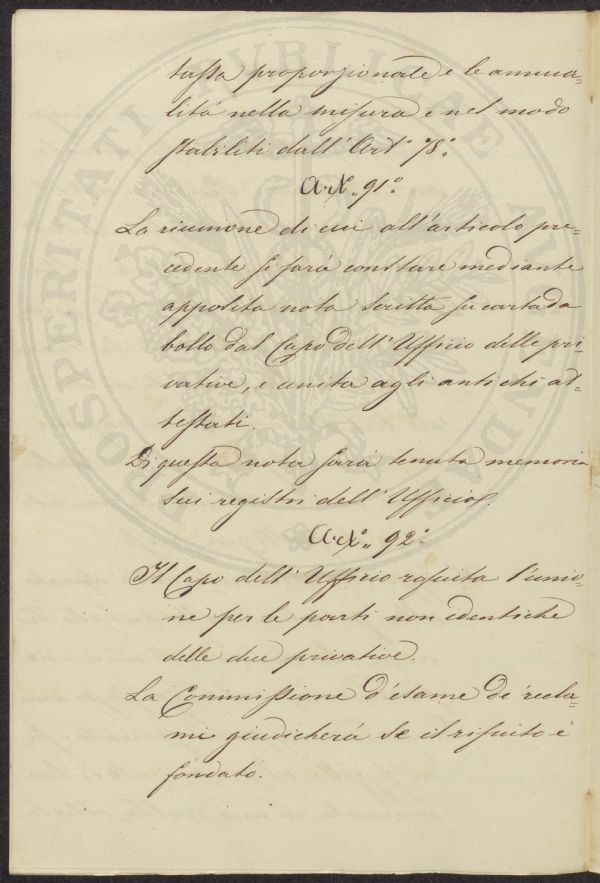 tassa proporzionale e le annua-
lità nella misura e nel modo
stabiliti dall' Art.° 78.°
Art.° 91.°
La riunione di cui all'articolo pre-
cedente si farà constare mediante
apposita nota scritta su carta da
bollo dal Capo dell' Ufficio delle pri-
vative, e unita agli antichi at-
testati.
Di questa nota sarà tenuta memoria
sui registri dell' Ufficio.
Art.° 92.°
Il Capo dell' Ufficio rifiuta l'unio-
ne per le parti non identiche
delle due privative.
La Commissione d'esame de' recla-
mi giudicherà se il rifiuto è
fondato.
PROSPERITATI PVBLICAE AVGENDAE